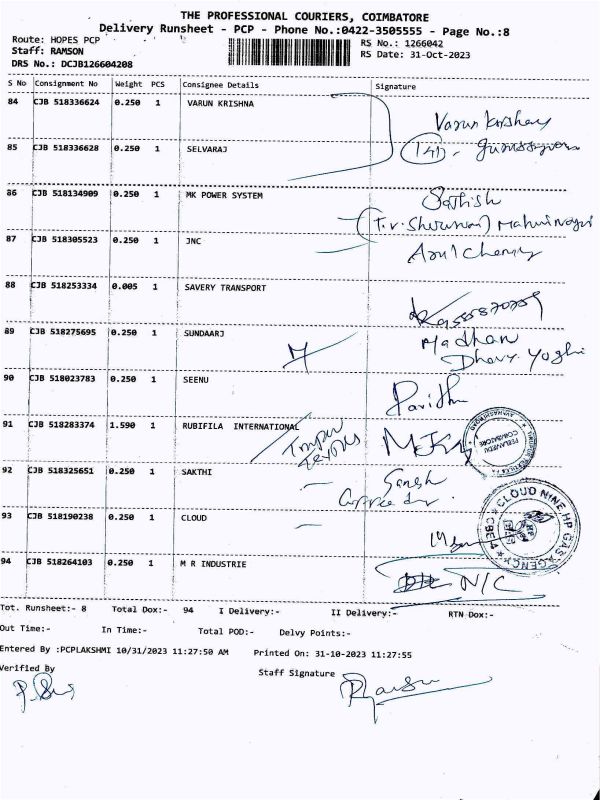 THE PROFESSIONAL COURIERS, COIMBATORE
Delivery Runsheet - PCP - Phone No.:0422-3505555 - Page No.:8
Route: HOPES PCP
RS No.: 1266042
Staff: RAMSON
RS Date: 31-Oct-2023
DRS No.: DCJB126604208
S No Consignment No Weight PCS Consignee Details Signature
84 CJB 518336624 0.250 1 VARUN KRISHNA
Varun
85 CJB 518336628 0.250 1 SELVARAJ
86 CJB 518134909 0.250 1 MK POWER SYSTEM
Sathish
87 CJB 518305523 0.250 1 JNC
88 CJB 518253334 0.005 1 SAVERY TRANSPORT
89 CJB 518275695 0.250 1 SUNDAARJ
Madhan
90 CJB 518023783 0.250 1 SEENU
91 CJB 518283374 1.590 1 RUBIFILA INTERNATIONAL
92 CJB 518325651 0.250 1 SAKTHI
93 CJB 518190238 0.250 1 CLOUD
CLOUD NINE HP GAS AGENCY
94 CJB 518264103 0.250 1 M R INDUSTRIE
N/C
Tot. Runsheet:- 8 Total Dox:- 94 I Delivery:- II Delivery:- RTN Dox:-
Out Time:- In Time:- Total POD:- Delvy Points:-
Entered By :PCPLAKSHMI 10/31/2023 11:27:50 AM Printed On: 31-10-2023 11:27:55
Verified By
Staff Signature